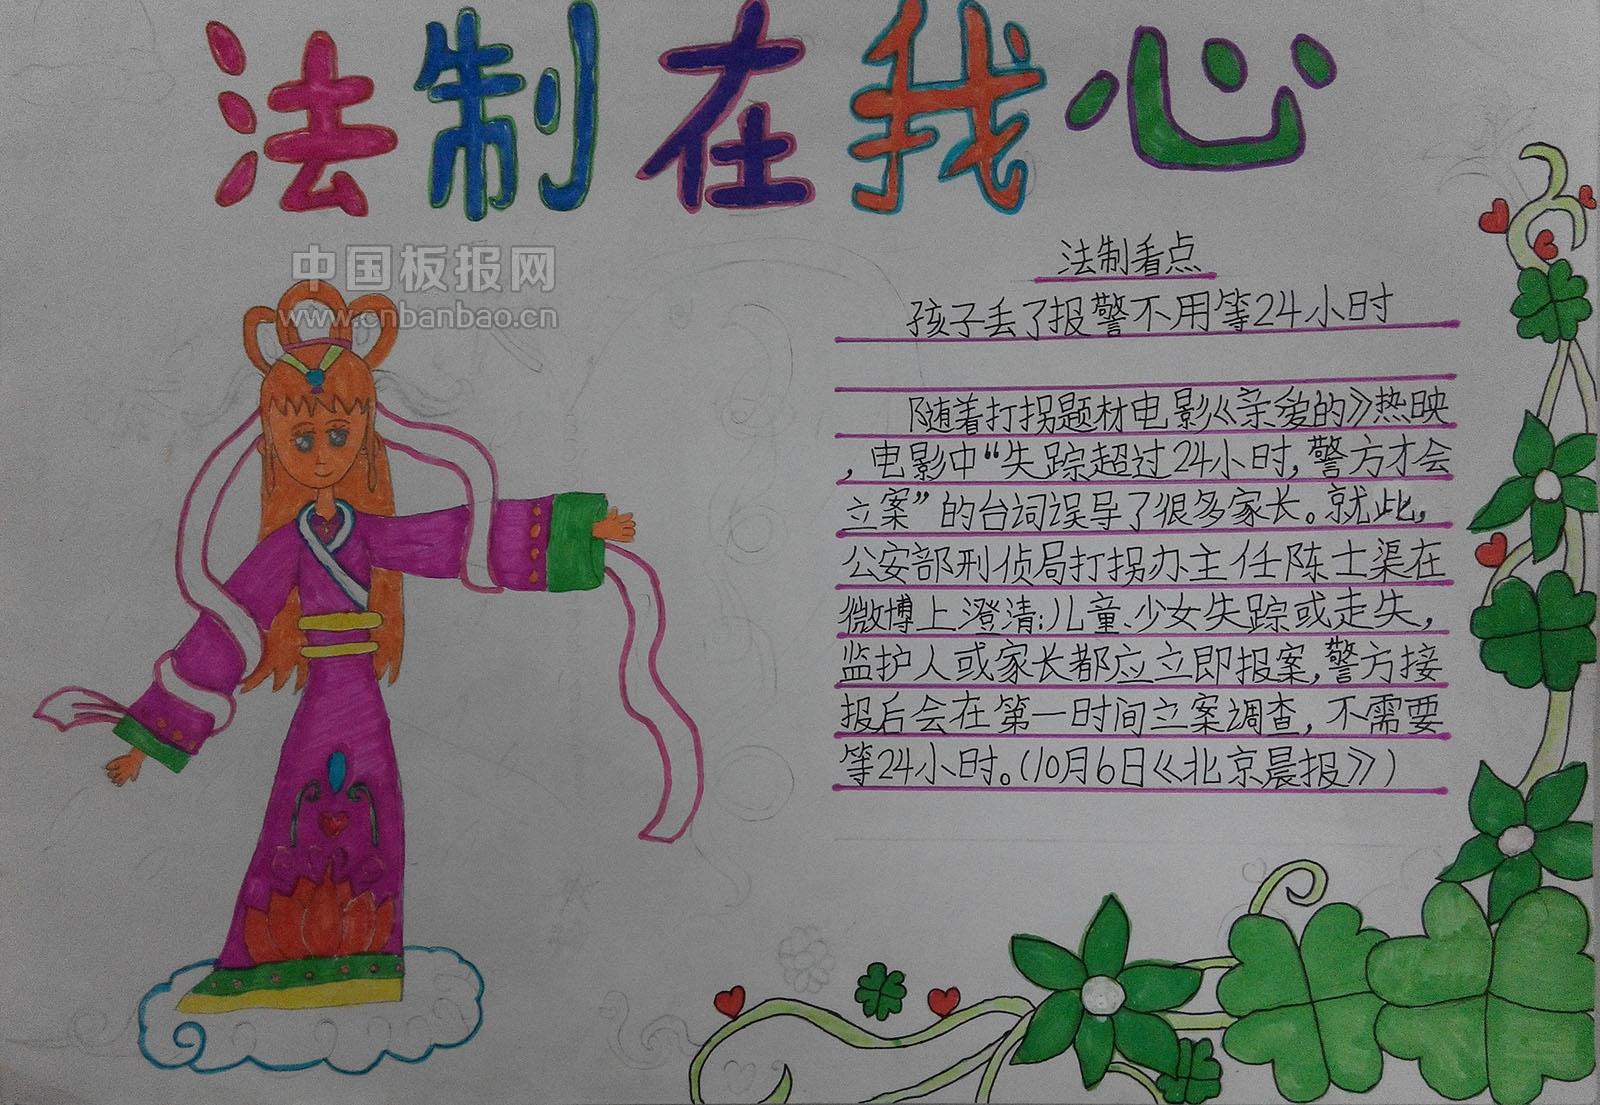 法制在我心
中国板报网
www.cnbanbao.cn
法制看点
孩子丢了报警不用等24小时
随着打拐题材电影《亲爱的》热映
，电影中“失踪超过24小时，警方才会
立案”的台词误导了很多家长。就此，
公安部刑侦局打拐办主任陈士渠在
微博上澄清：儿童、少女失踪或走失，
监护人或家长都应立即报案，警方接
报后会在第一时间立案调查，不需要
等24小时。（10月6日《北京晨报》）